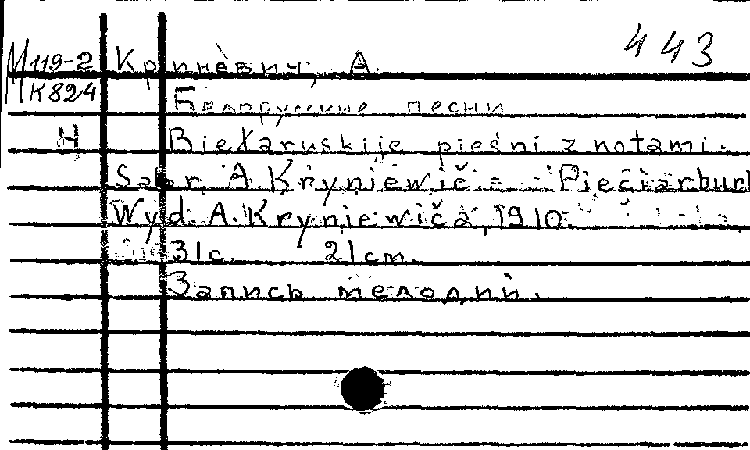 443
М119-2 Криневич, А.
МК824
Белорусские песни
Н Biełaruskije pieśni z notami.
Sabr. A. Kryniewič. – Pieciarburh
Wyd. A. Kryniewiča, 1910.
31с. 21cm.
Запись мелодий.